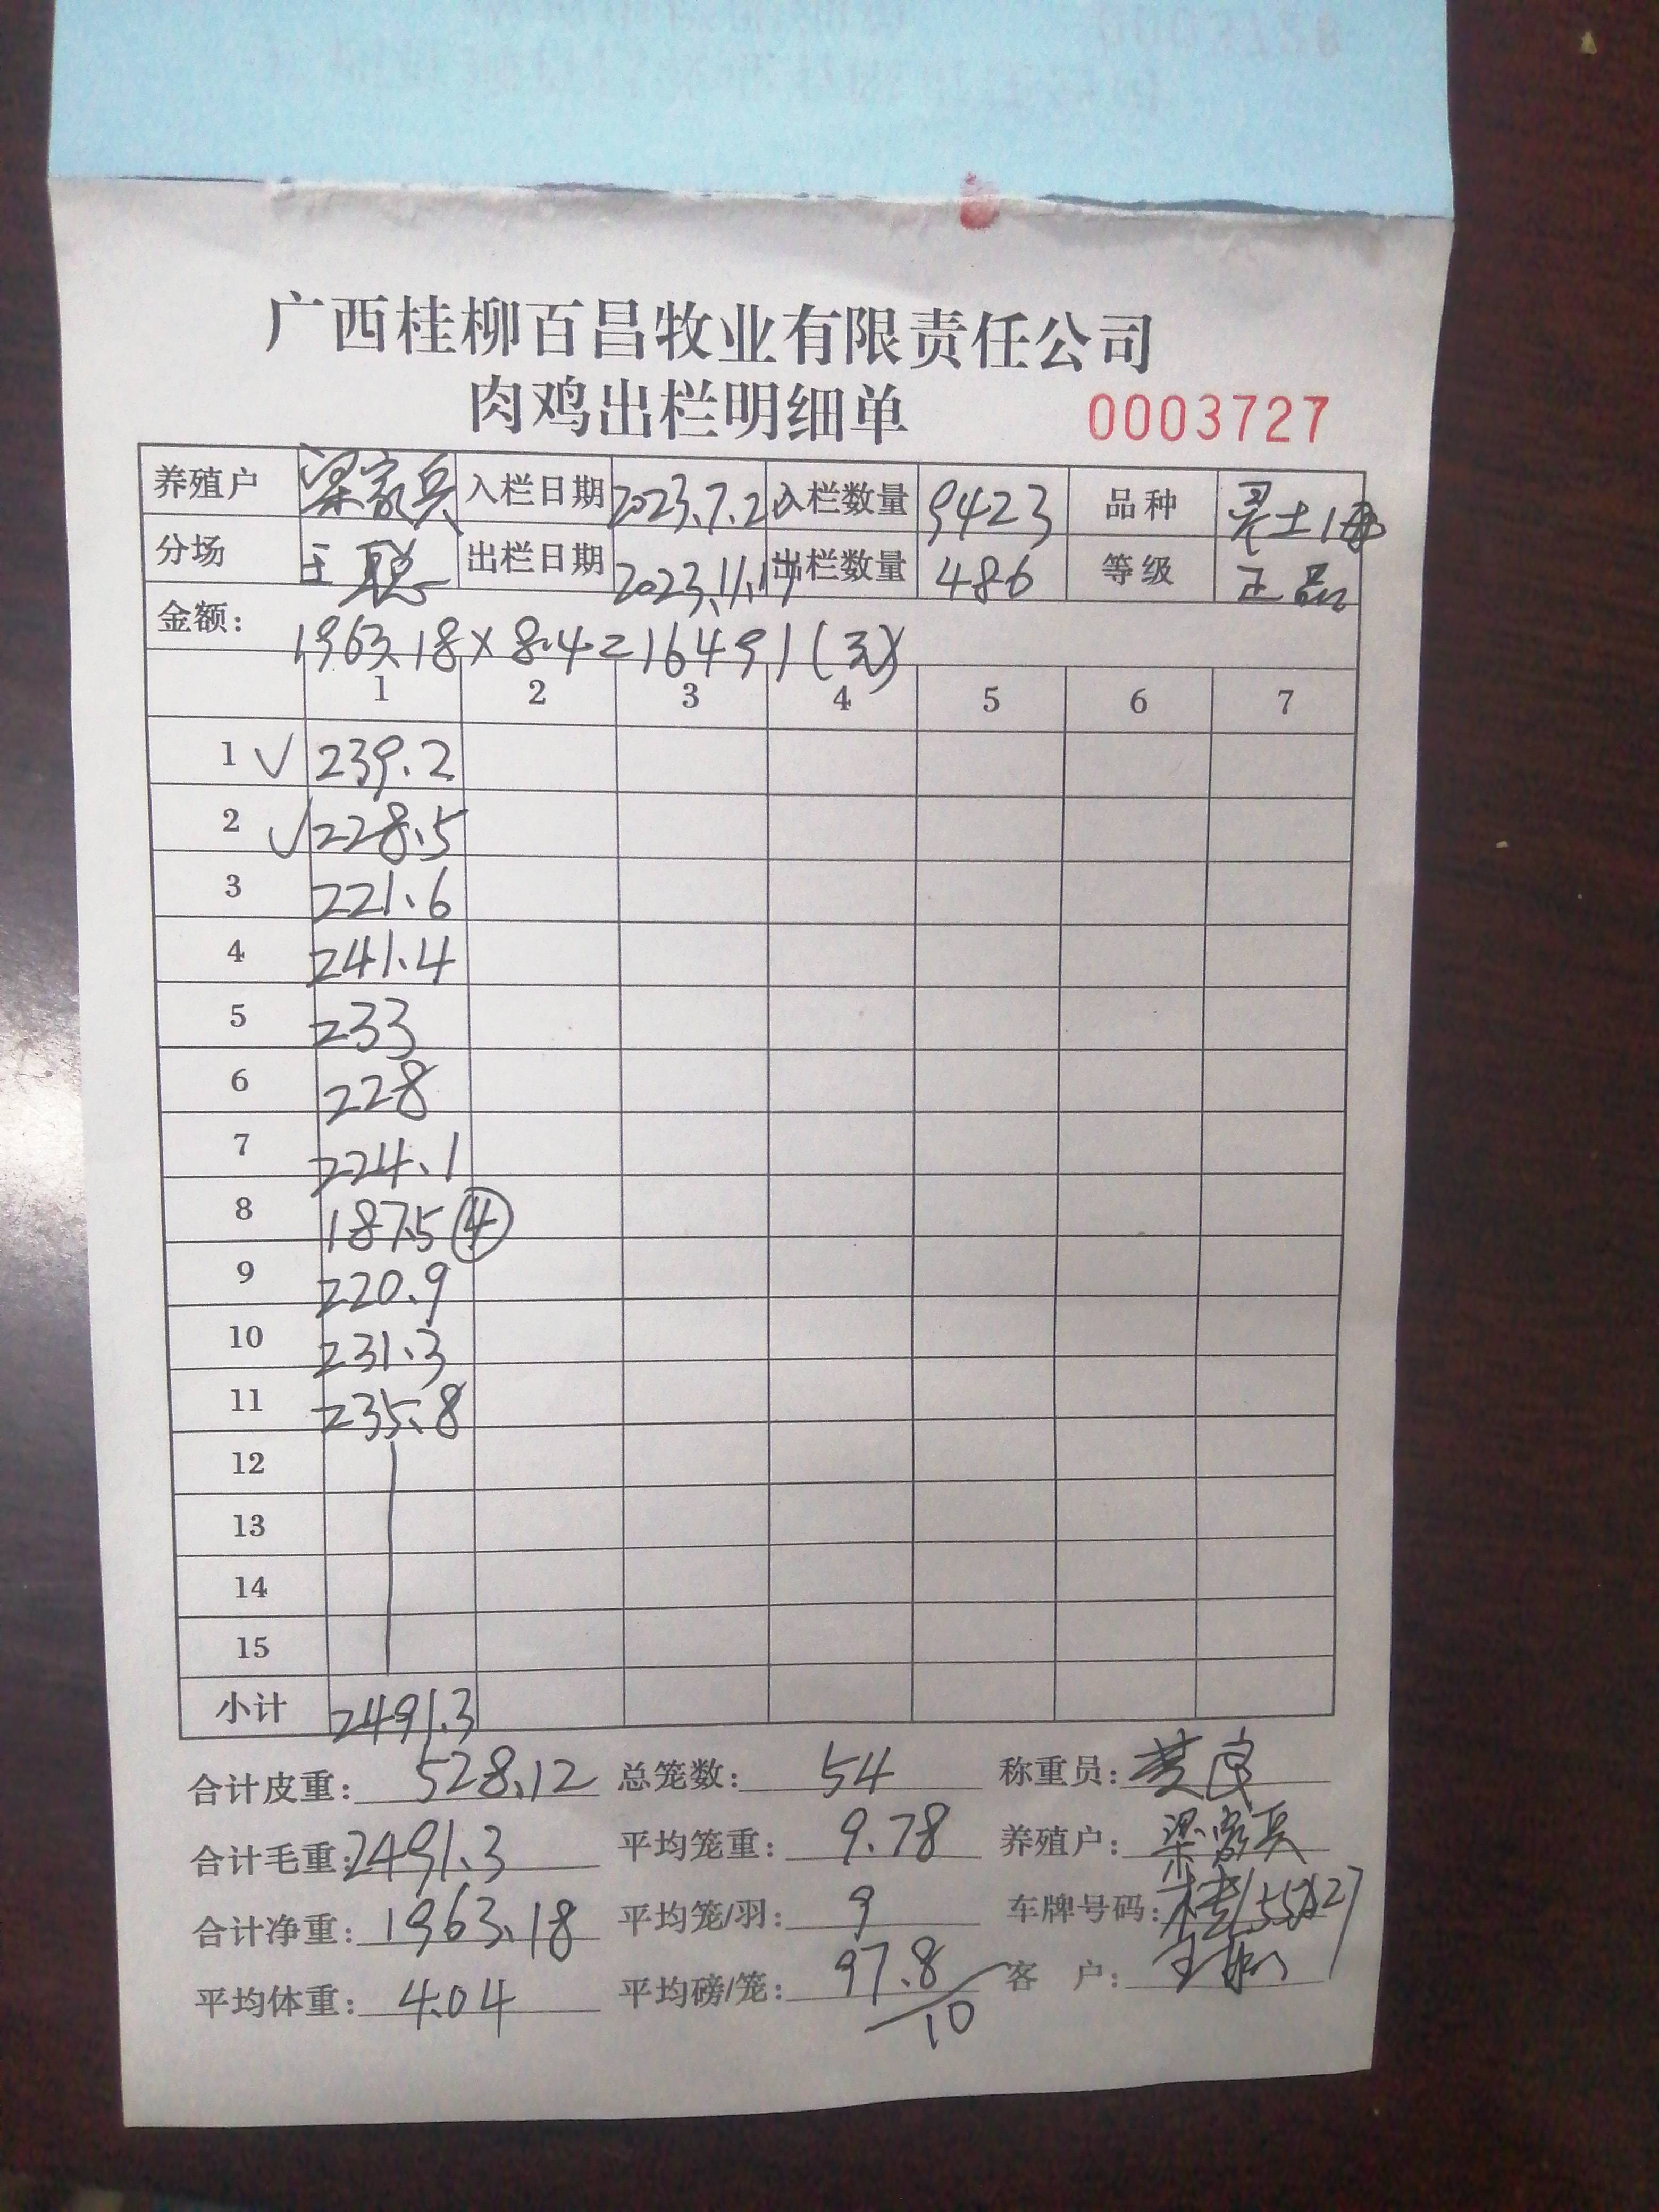 广西桂柳百昌牧业有限责任公司
肉鸡出栏明细单 0003727
养殖户 梁家兵 入栏日期 2023.7.2 入栏数量 9423 品种 土
分场 王聪 出栏日期 2023.11.17 出栏数量 486 等级 正品
金额: 1963.18×8.4=16491(元)
1 2 3 4 5 6 7
1 √ 239.2
2 √ 228.5
3 221.6
4 241.4
5 233
6 228
7 224.1
8 187.5 ④
9 220.9
10 231.3
11 235.8
12
13
14
15
小计 2491.3
合计皮重: 528.12 总笼数: 54 称重员:
合计毛重: 2491.3 平均笼重: 9.78 养殖户: 梁家兵
合计净重: 1963.18 平均笼/羽: 9 车牌号码:
平均体重: 4.04 平均磅/笼: 97.8/10 客 户: